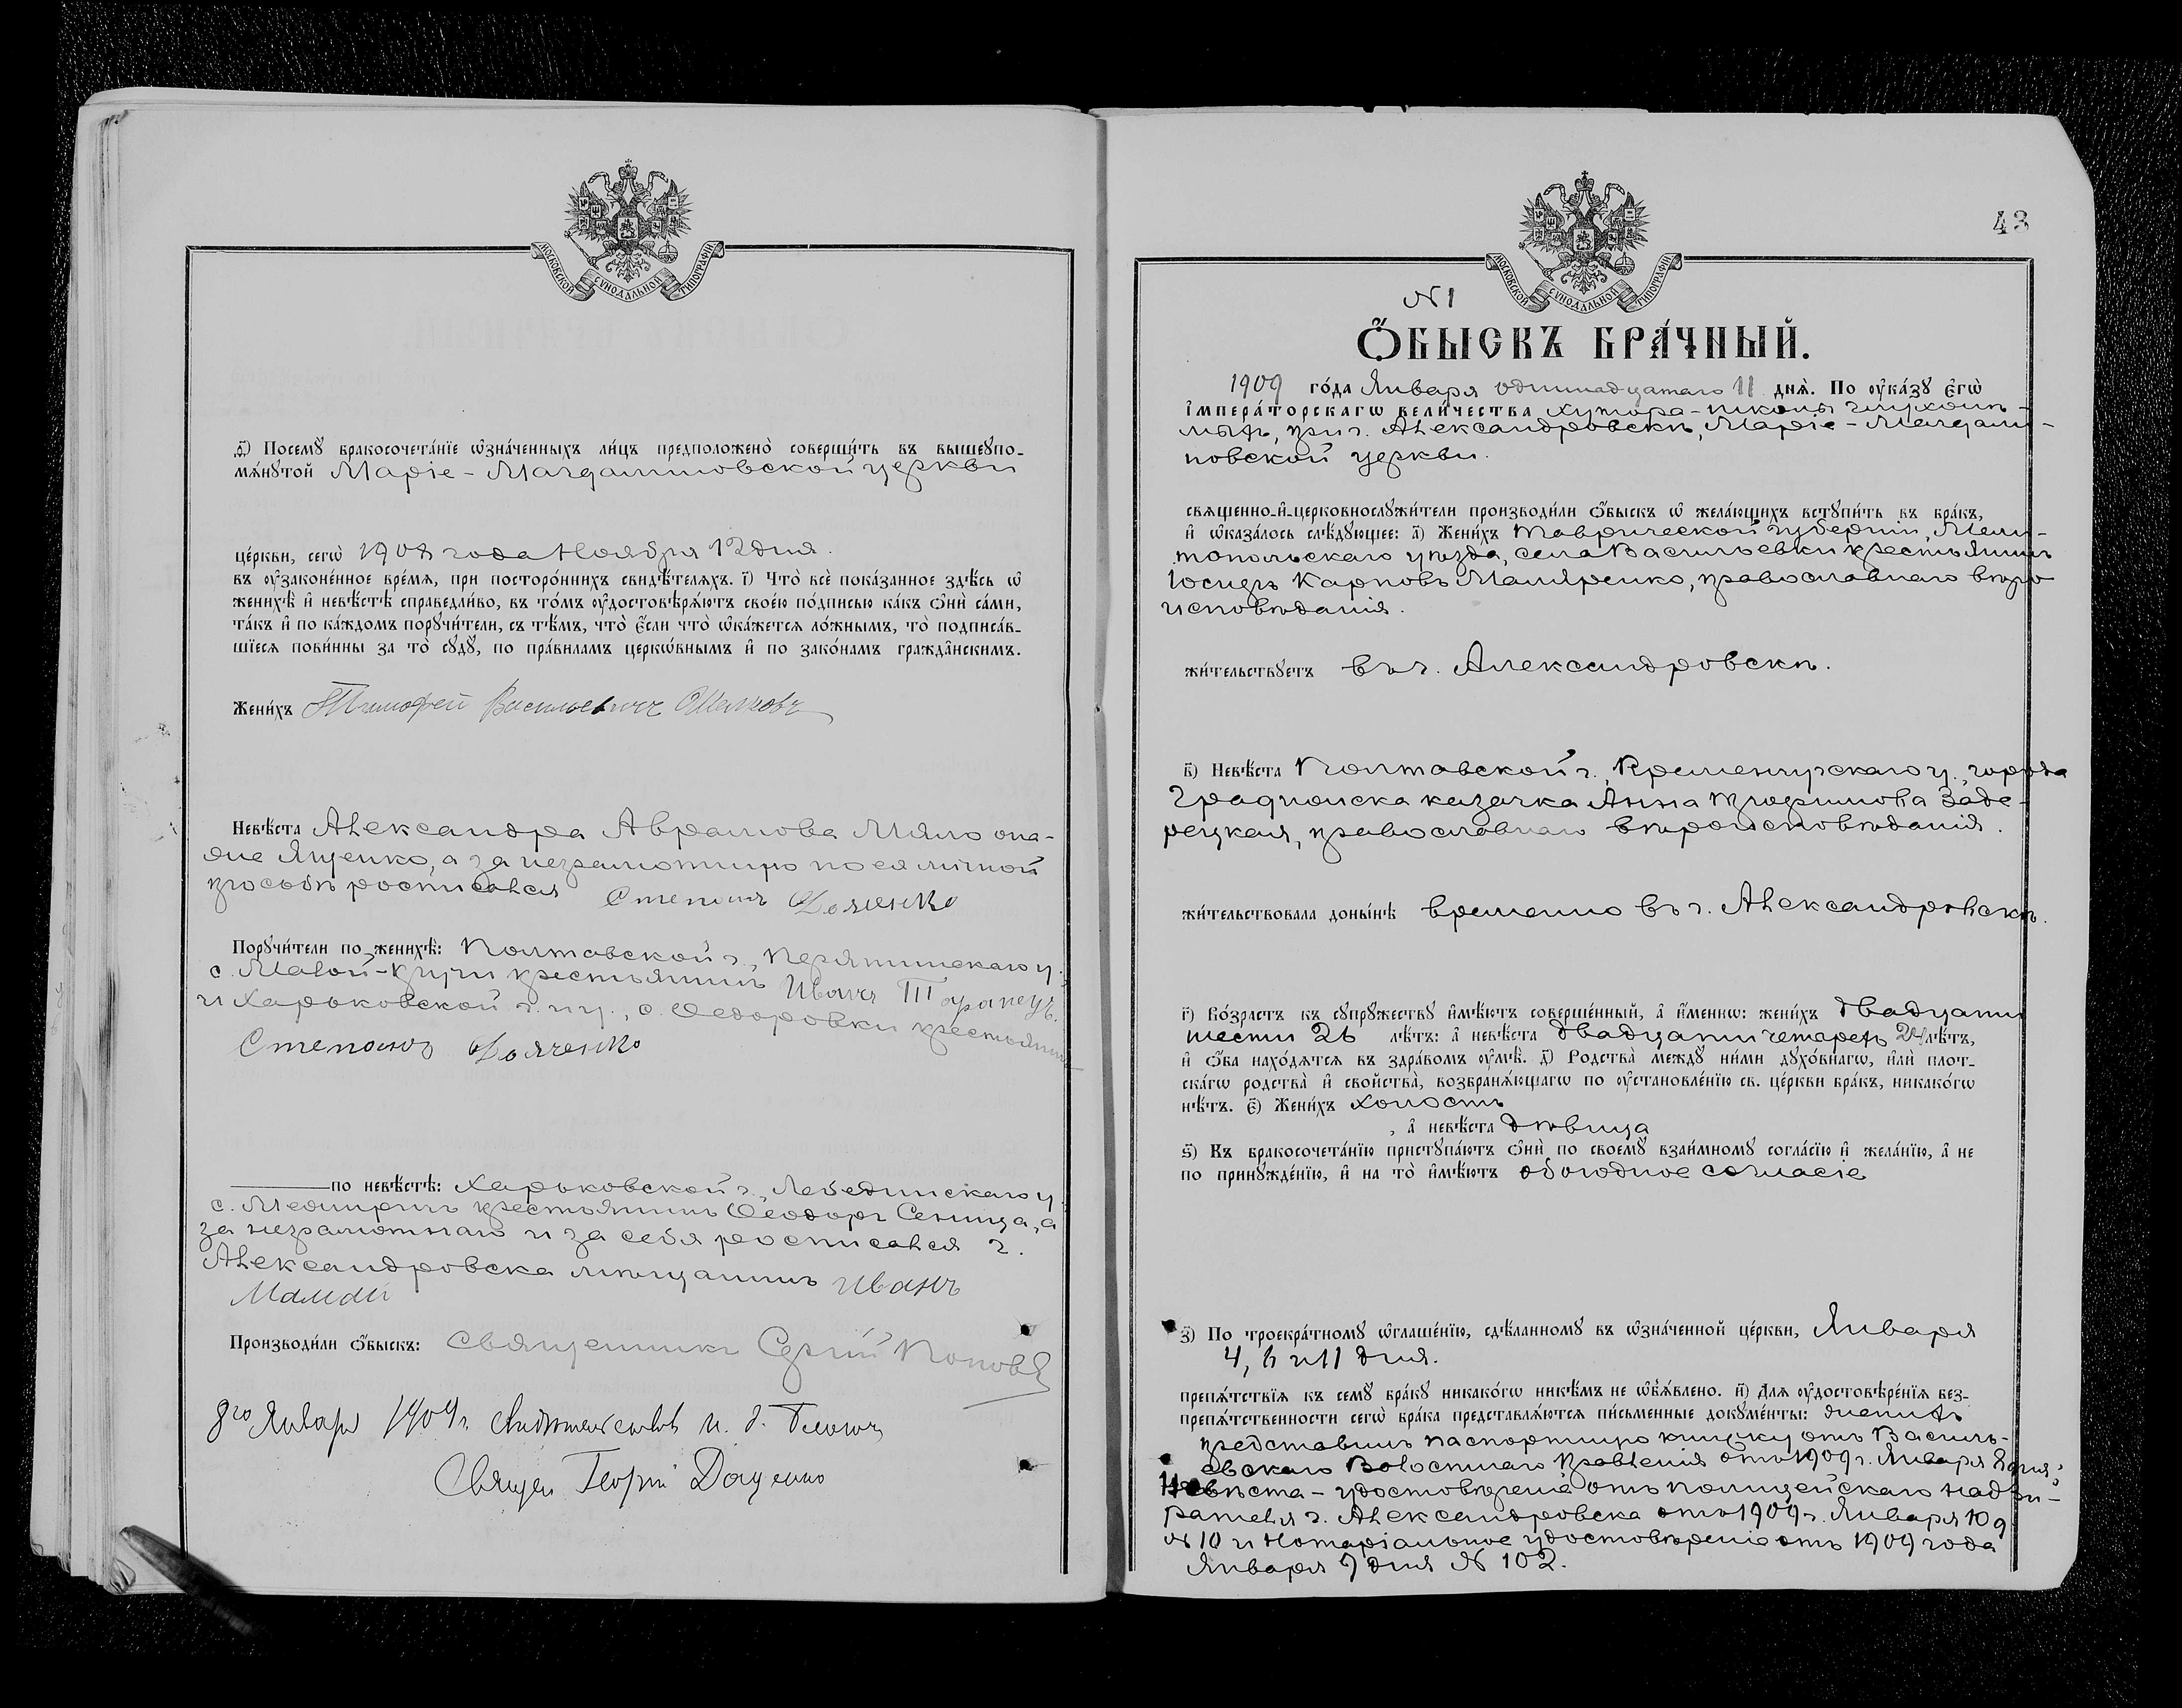 МОСКОВСКОЙ СѴНОДАЛЬНОЙ ТИПОГРАФІИ
ѳ҃) Посемꙋ бракосочета́нїе ѡзна́ченныхъ ли́цъ предположено̀ соверши́ть въ вышеꙋпо-
мѧ́нꙋтой Маріе-Магдалиновской церкви
це́ркви, сегѡ̀ 1908 года Ноября 12 дня.
въ ᲂу҆законе́нное вре́мѧ, при посторо́ннихъ свидѣ́телѧхъ. і҃) Что̀ всѐ пока́занное здѣ́сь ѡ҆
женихѣ̀ и҆ невѣ́стѣ справедли́во, въ то́мъ ᲂу҆достовѣрѧ́ютъ свое́ю по́дписью ка́къ ѻ҆нѝ са́ми,
та́къ и҆ по ка́ждомъ порꙋчи́тели, съ тѣ́мъ, что̀ є҆́сли что̀ ѡ҆ка́жетсѧ ло́жнымъ, то̀ подписа́в-
шїесѧ пови́нны за то̀ сꙋдꙋ̀, по пра́виламъ церкѡ́внымъ и҆ по зако́намъ гражда̂нскимъ.
Жени́хъ Тимофей Васильевичъ
Невѣ́ста Александра Аврамова Мяло она-
же Яценко, а за неграмотную по ея личной
прозьбѣ росписался Степанъ Дяченко
Порꙋчи́тели по женихѣ̀: Полтавской г., Пирятинскаго у.,
с. Малой-Кручи крестьянинъ Иванъ Тарапецъ.
и Харьковской г. и у., с. Ѳедоровки крестьянинъ
Степанъ Дяченко
по невѣ́стѣ: Харьковской г., Лебединскаго у.
с. Межирич крестьянинъ Ѳеодоръ Сеница, а
за неграмотнаго и за себя росписался г.
Александровска мѣщанинъ Иванъ
Мамай
Производи́ли ѻ҆́быскъ: Священникъ Сергій Поповъ
8го Января 1909 г. свидѣтельствов. и. д. Благоч.
Священ. Георгій Доценко
43
МОСКОВСКОЙ СѴНОДАЛЬНОЙ ТИПОГРАФІИ
N 1
Ѻ҆́БЫСКЪ БРА́ЧНЫЙ.
1909 го́да Января одиннадцатаго 11 днѧ̀. По ᲂу҆ка́зꙋ є҆гѡ̀
і҆мпера́торскагѡ вели́чества хутора-школы глухонѣ-
мыхъ, при г. Александровскѣ, Маріе-Магдали-
новской церкви.
свѧщенно-и҆-церковнослꙋжи́тели производи́ли ѻ҆́быскъ ѡ҆ жела́ющихъ встꙋпи́ть въ бра́къ,
и҆ ѡ҆каза́лось слѣ́дꙋющее: а҃) Жени́хъ Таврической губерніи, Мели-
топольскаго уѣзда, села Васильевки крестьянинъ
Іосифъ Карповъ Маляренко, православнаго вѣро-
исповѣданія.
жи́тельствꙋетъ въ г. Александровскѣ.
в҃) Невѣ́ста Полтавской г., Кременчугскаго у., города
Градижска казачка Анна Трофимова Заде-
рецкая, православнаго вѣроисповѣданія.
жи́тельствовала доны́нѣ временно въ г. Александровскѣ.
г҃) Во́зрастъ къ сꙋпрꙋ́жествꙋ и҆мѣ́ютъ соверше́нный, а҆ и҆́меннѡ: жени́хъ двадцати
шести 26 лѣ́тъ: а҆ невѣ́ста двадцати четырехъ 24 лѣ́тъ,
и҆ ѻ҆́ба нахо́дѧтсѧ въ здра́вомъ ᲂу҆мѣ̀. д҃) Родства̀ междꙋ̀ ни́ми дꙋхо́внагѡ, и҆лѝ плот-
ска́гѡ родства̀ и҆ свойства̀, возбранѧ́ющагѡ по ᲂу҆становле́нїю св. це́ркви бра́къ, никако́гѡ
нѣ́тъ. є҃) Жени́хъ холостъ
, а҆ невѣ́ста дѣвица
ѕ҃) Къ бракосочета́нїю пристꙋпа́ютъ ѻ҆нѝ по своемꙋ̀ взаи́мномꙋ согла́сїю и҆ жела́нїю, а҆ не
по принꙋжде́нїю, и҆ на то̀ и҆мѣ́ютъ обоюдное согласіе
з҃) По троекра́тномꙋ ѡ҆глаше́нїю, сдѣ́ланномꙋ въ ѡ҆зна́ченной це́ркви, Января
4, 6 и 11 дня.
препѧ́тствїѧ къ семꙋ̀ бра́кꙋ никако́гѡ никѣ́мъ не ѡ҆б̾ѧ́влено. и҃) Для ᲂу҆достовѣре́нїѧ без-
препѧ́тственности сегѡ̀ бра́ка представлѧ́ютсѧ пи́сьменные докꙋме́нты: женихъ
представилъ паспортную книжку отъ Василь-
евскаго Волостнаго Правленія отъ 1909 г. Января 8 дня;
Невѣста - удостовѣреніе отъ полицейскаго надзи-
рателя г. Александровска отъ 1909 г. Января 10 д
N 10 и Нотаріальное удостовѣреніе отъ 1909 года
Января 9 дня N 102.